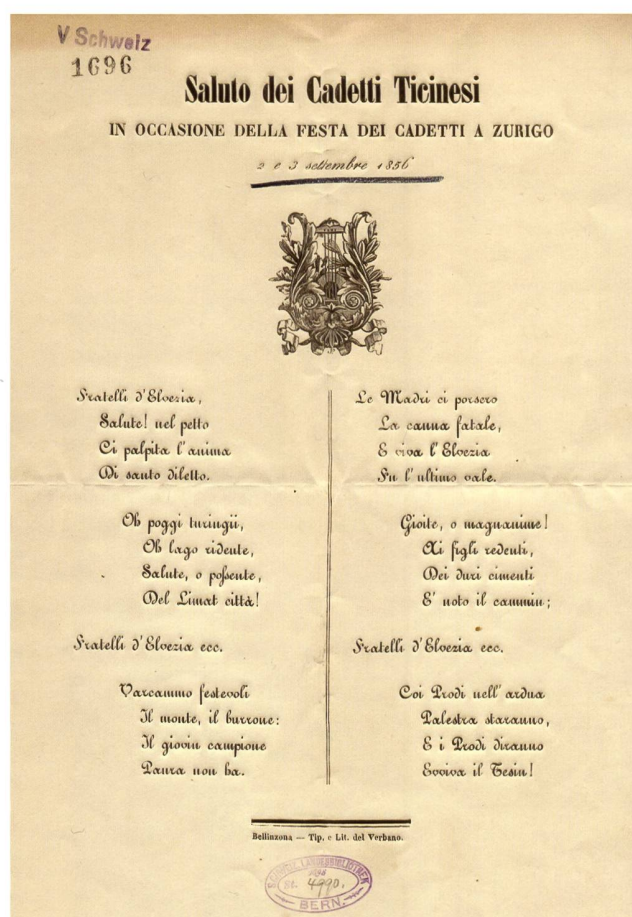 V Schweiz
1696
Saluto dei Cadetti Ticinesi
IN OCCASIONE DELLA FESTA DEI CADETTI A ZURIGO
2 e 3 settembre 1856
Fratelli d'Elvezia,
Salute! nel petto
Ci palpita l'anima
Di santo diletto.
Oh poggi turingii,
Oh lago ridente,
Salute, o poſsente,
Del Limat città!
Fratelli d'Elvezia ecc.
Varcammo festevoli
Il monte, il burrone:
Il giovin campione
Paura non ha.
Le Madri ci porsero
La canna fatale,
E viva l'Elvezia
Fu l'ultimo vale.
Gioite, o magnanime!
Ai figli redenti,
Dei duri cimenti
E' noto il cammin;
Fratelli d'Elvezia ecc.
Coi Prodi nell'ardua
Palestra staranno,
E i Prodi diranno
Evviva il Tesin!
Bellinzona — Tip. e Lit. del Verbano.
SCHWEIZ. LANDESBIBLIOTHEK
4990.
BERN.